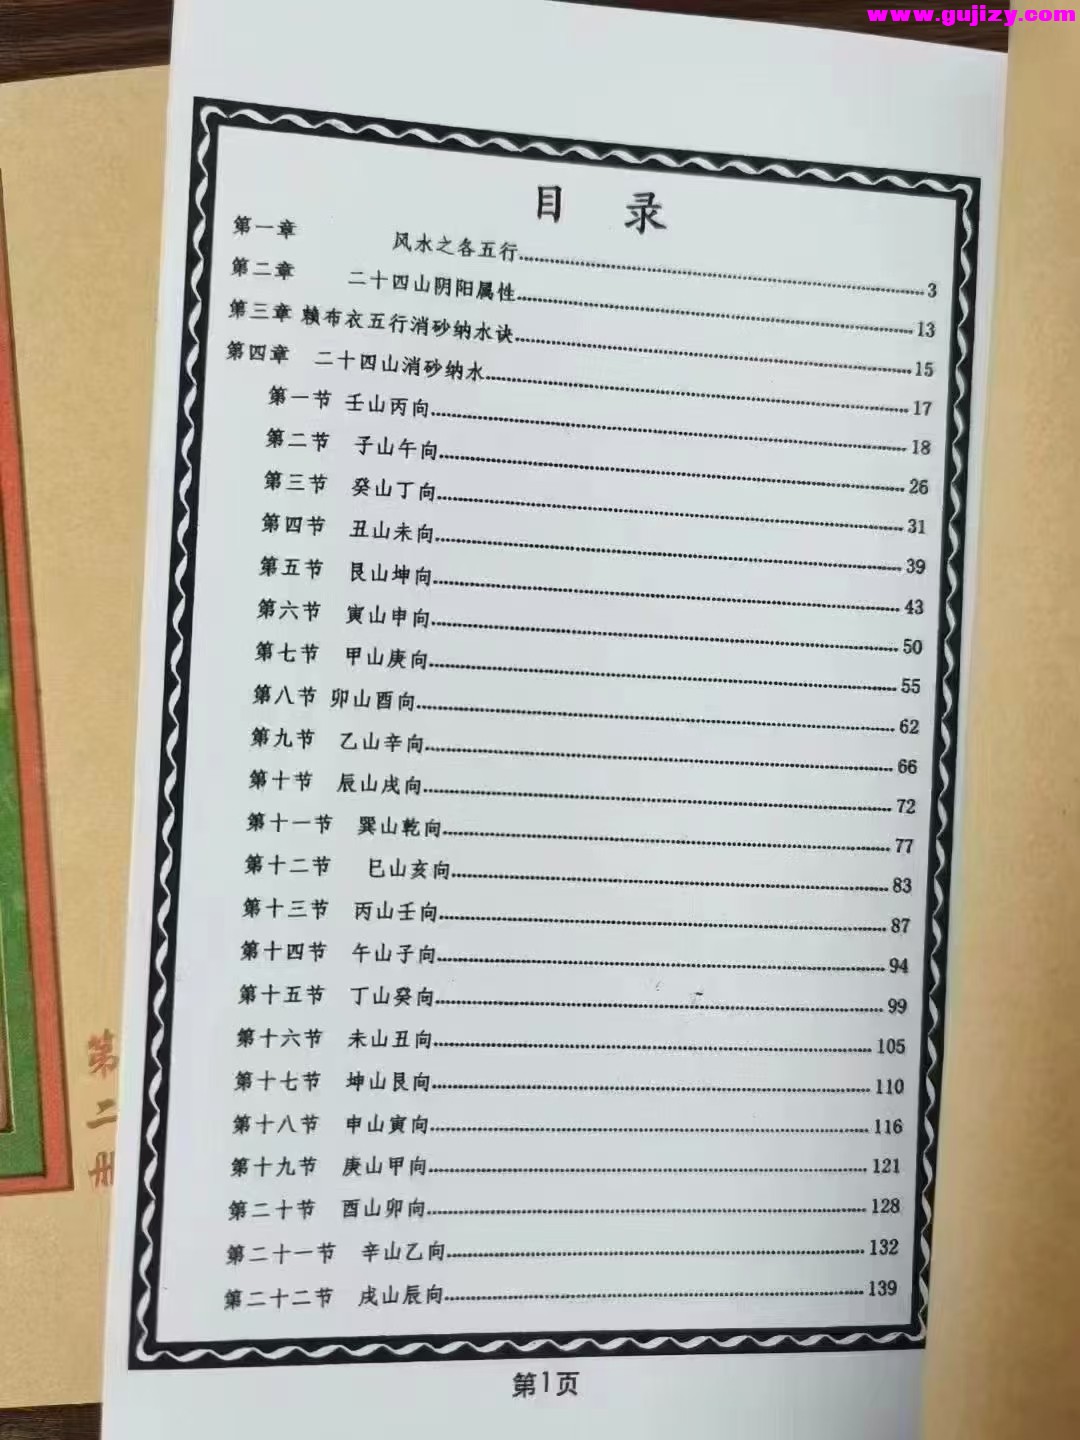 www.gujizy.com
目 录
第一章 风水之各五行 3
第二章 二十四山阴阳属性 13
第三章 赖布衣五行消砂纳水诀 15
第四章 二十四山消砂纳水 17
第一节 壬山丙向 18
第二节 子山午向 26
第三节 癸山丁向 31
第四节 丑山未向 39
第五节 艮山坤向 43
第六节 寅山申向 50
第七节 甲山庚向 55
第八节 卯山酉向 62
第九节 乙山辛向 66
第十节 辰山戌向 72
第十一节 巽山乾向 77
第十二节 巳山亥向 83
第十三节 丙山壬向 87
第十四节 午山子向 94
第十五节 丁山癸向 99
第十六节 未山丑向 105
第十七节 坤山艮向 110
第十八节 申山寅向 116
第十九节 庚山甲向 121
第二十节 酉山卯向 128
第二十一节 辛山乙向 132
第二十二节 戌山辰向 139
第1页
第二册